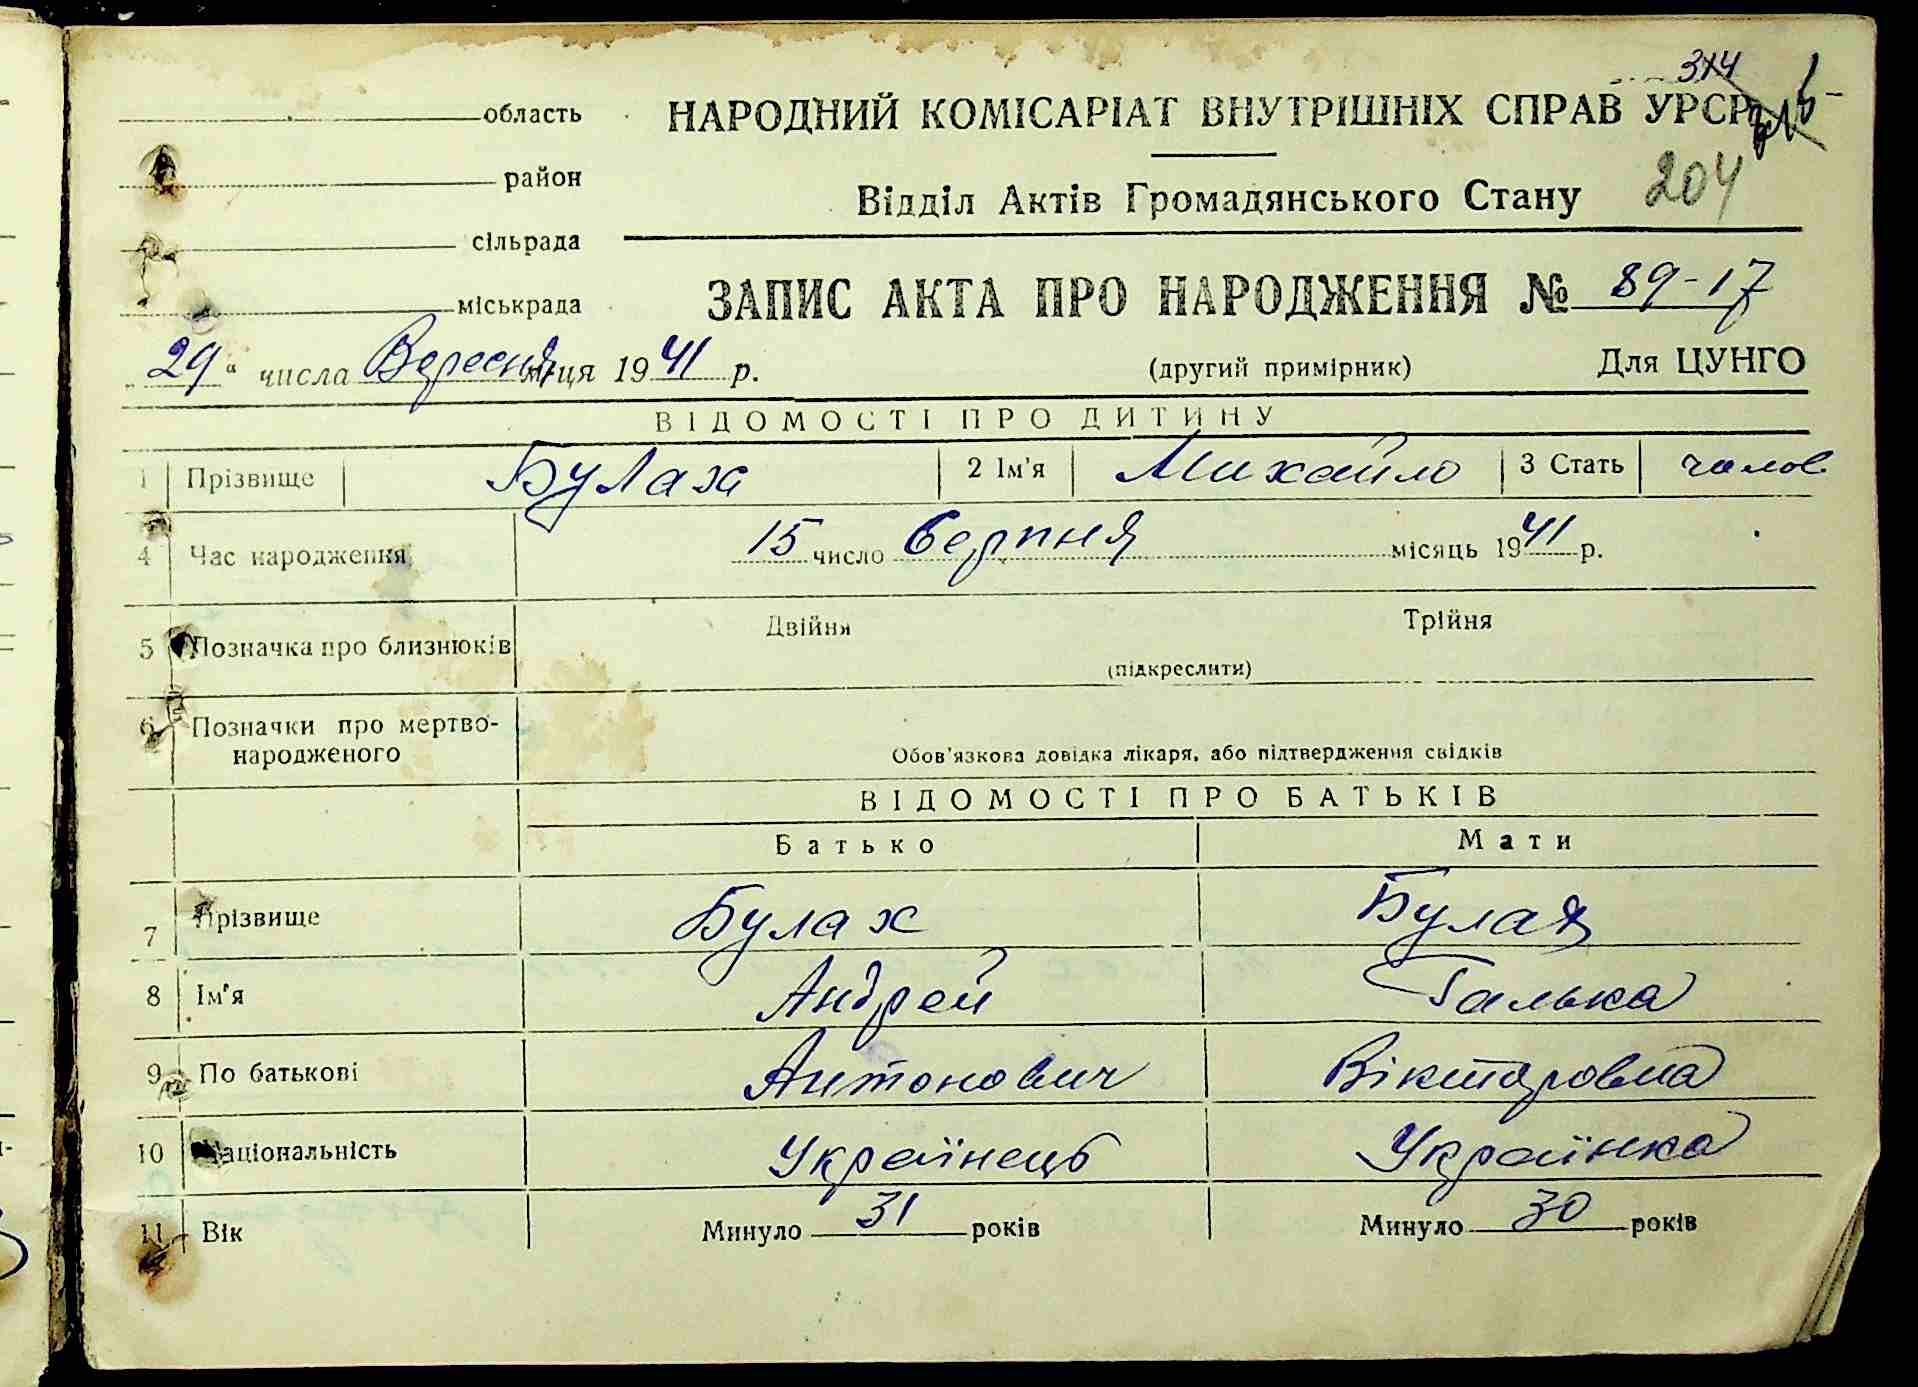 314
область
НАРОДНИЙ КОМІСАРІАТ ВНУТРІШНІХ СПРАВ УРСР
район
Відділ Актів Громадянського Стану
204
сільрада
міськрада
ЗАПИС АКТА ПРО НАРОДЖЕННЯ № 89-17
„29“ числа Вересня м-ця 1941 р.
(другий примірник)
Для ЦУНГО
ВІДОМОСТІ ПРО ДИТИНУ
1 Прізвище Булах 2 Ім'я Михайло 3 Стать чолов.
4 Час народження 15 число Серпня місяць 1941 р.
5 Позначка про близнюків Двійня Трійня
(підкреслити)
6 Позначки про мертво-
народженого
Обов'язкова довідка лікаря, або підтвердження свідків
ВІДОМОСТІ ПРО БАТЬКІВ
Батько Мати
7 Прізвище Булах Булах
8 Ім'я Андрей Галька
9 По батькові Антонович Вікторовна
10 Національність Українець Українка
11 Вік Минуло 31 років Минуло 30 років